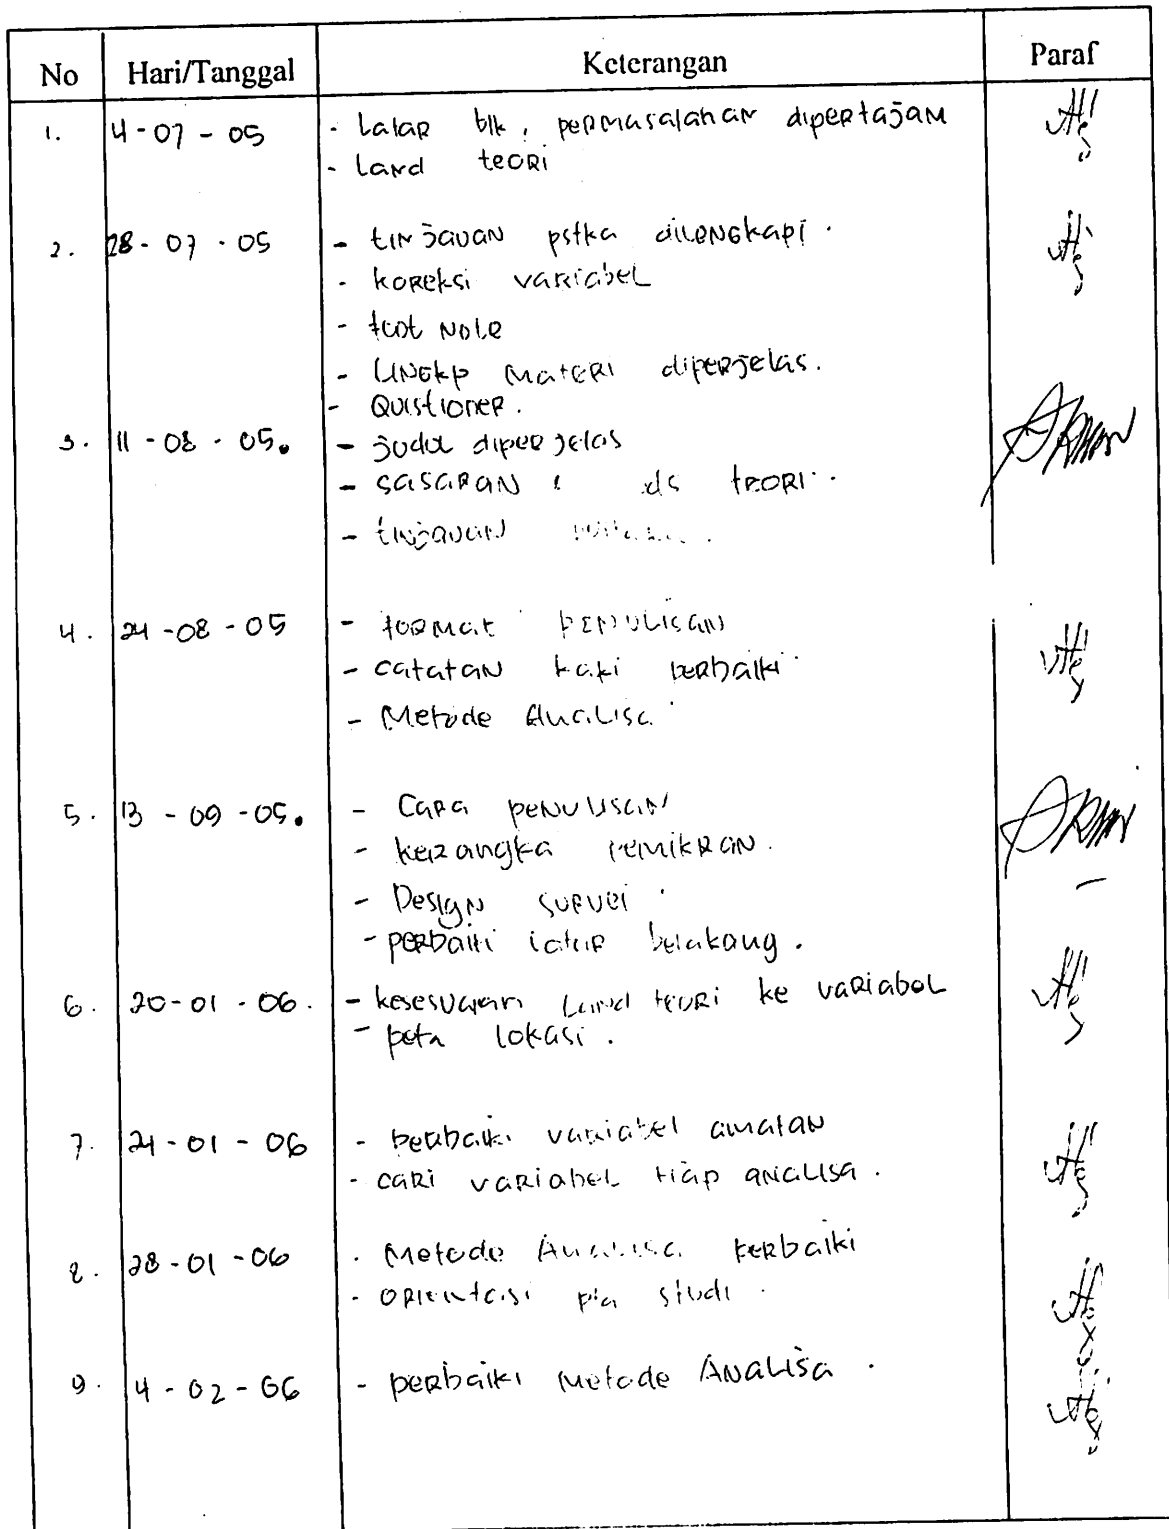 No Hari/Tanggal Keterangan Paraf
1. 4-07-05 - Latar blk, permasalahan dipertajam
- Land teori
2. 28-07-05 - tinjauan pstka dilengkapi.
- koreksi variabel
- foot note
- lingkp materi diperjelas.
- Quistioner.
3. 11-08-05. - judul diperjelas
- sasaran teori.
- tinjauan
4. 24-08-05 - format penulisan
- catatan kaki perbaiki
- Metode Analisa
5. 13-09-05. - Cara penulisan
- kerangka pemikran.
- Design survei
- perbaiki latar belakang.
6. 20-01-06. - kesesuaian Land teori ke variabel
- peta lokasi.
7. 24-01-06 - perbaiki variabel amatan
- cari variabel tiap analisa.
8. 28-01-06 - Metode Analisa perbaiki
- orientasi studi.
9. 4-02-06 - perbaiki Metode Analisa.